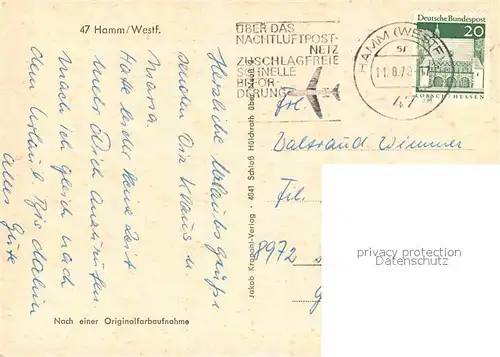 47 Hamm/Westf.
Herzliche Urlaubsgrüße
senden Dir Klaus u.
Hatte leider keine Zeit
mehr Dich anzurufen
mach ich gleich nach
dem Urlaub. Bis dahin
alles Gute
Nach einer Originalfarbaufnahme
Jakob Krapohl-Verlag · 4041 Schloß Hülchrath über Neuß
ÜBER DAS
NACHTLUFTPOST-
NETZ
ZUSCHLAGFREIE
SCHNELLE
BEFÖR-
DERUNG
HAMM (WESTF)
sr
11.8.70-17
47
Deutsche Bundespost
20
LORSCH/HESSEN
Frl.
Wimmer
Fil.
8972
privacy protection
Datenschutz